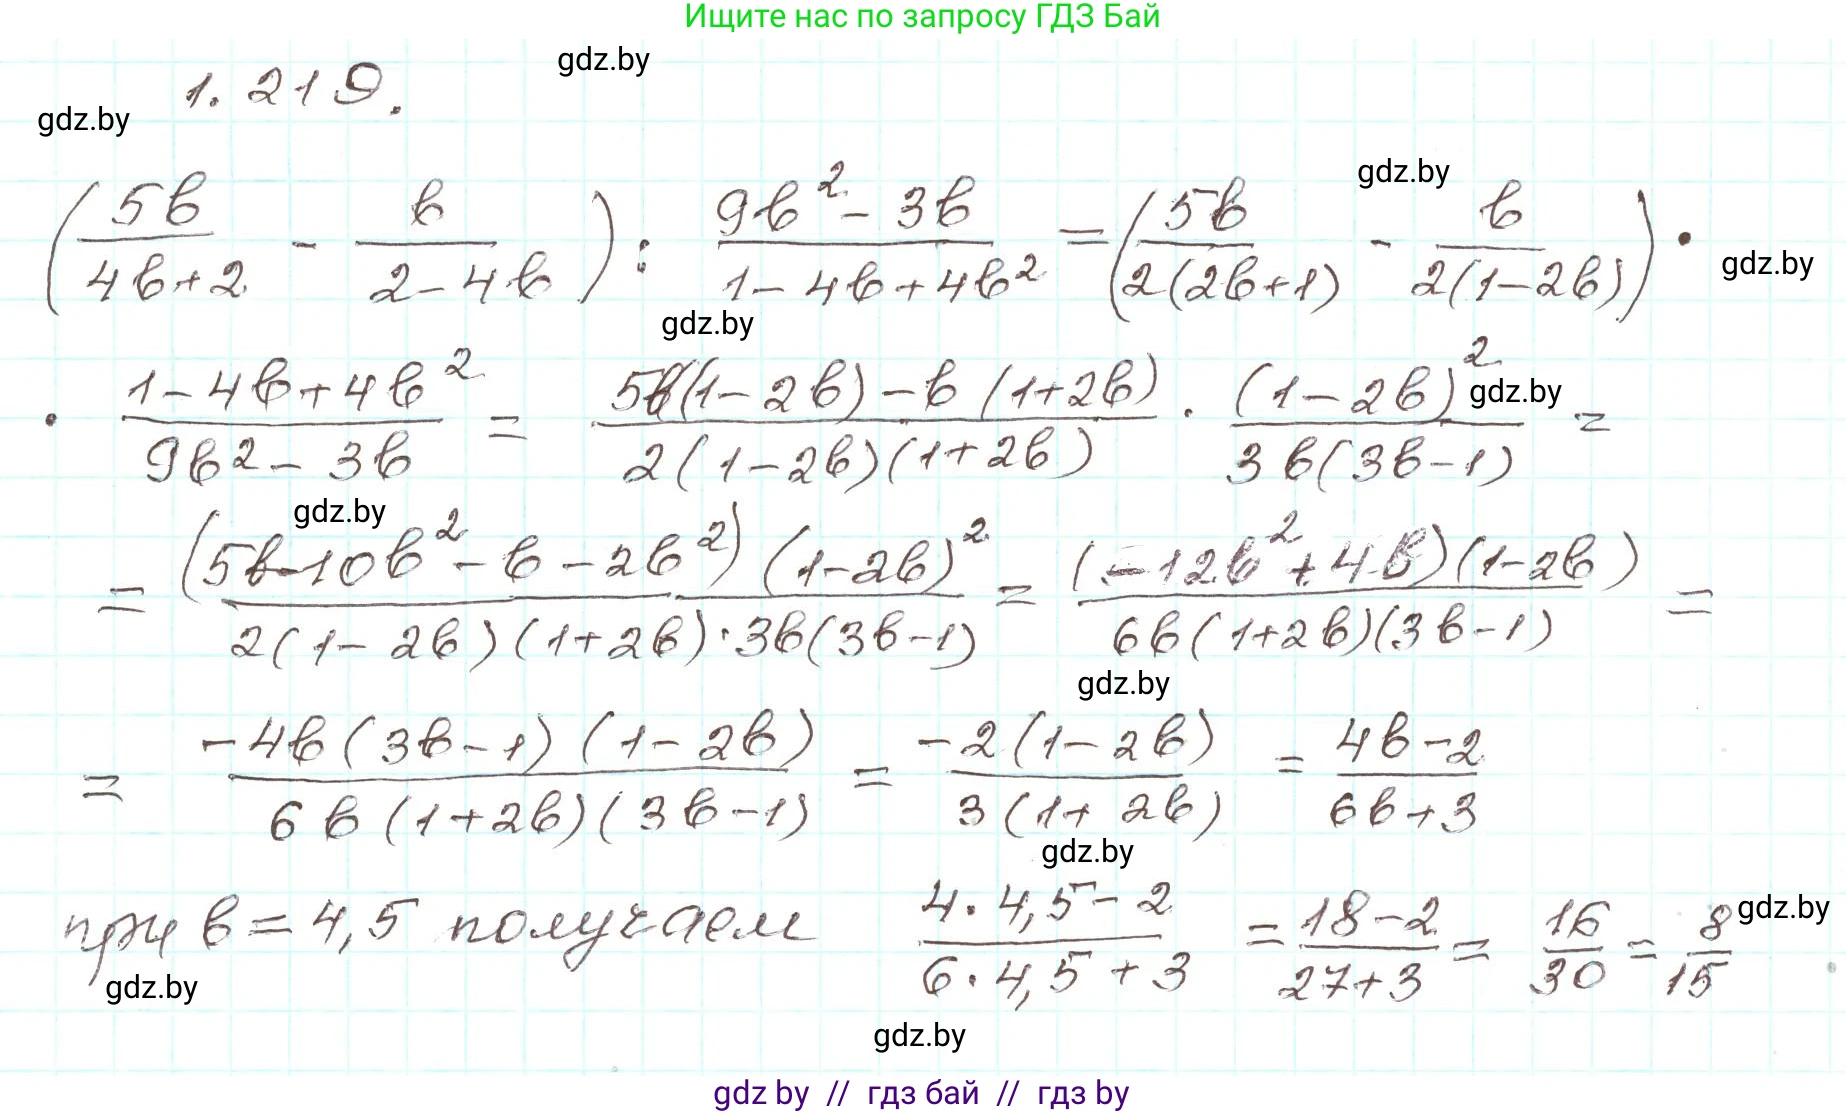 Ищите нас по запросу ГДЗ Бай
gdz.by
1.219.
gdz.by
gdz.by
(5b/(4b+2) - b/(2-4b)) : (9b² - 3b)/(1-4b+4b²) = (5b/(2(2b+1)) - b/(2(1-2b))) ·
gdz.by
gdz.by
· (1-4b+4b²)/(9b²-3b) = (5b(1-2b)-b(1+2b))/(2(1-2b)(1+2b)) · (1-2b)²/(3b(3b-1)) =
gdz.by
gdz.by
= ((5b-10b²-b-2b²)(1-2b)²)/(2(1-2b)(1+2b)·3b(3b-1)) = ((-12b²+4b)(1-2b))/(6b(1+2b)(3b-1)) =
gdz.by
= (-4b(3b-1)(1-2b))/(6b(1+2b)(3b-1)) = (-2(1-2b))/(3(1+2b)) = (4b-2)/(6b+3)
gdz.by
при b = 4,5 получаем (4·4,5-2)/(6·4,5+3) = (18-2)/(27+3) = 16/30 = 8/15
gdz.by
gdz.by
gdz.by
gdz by // гдз бай // гдз by